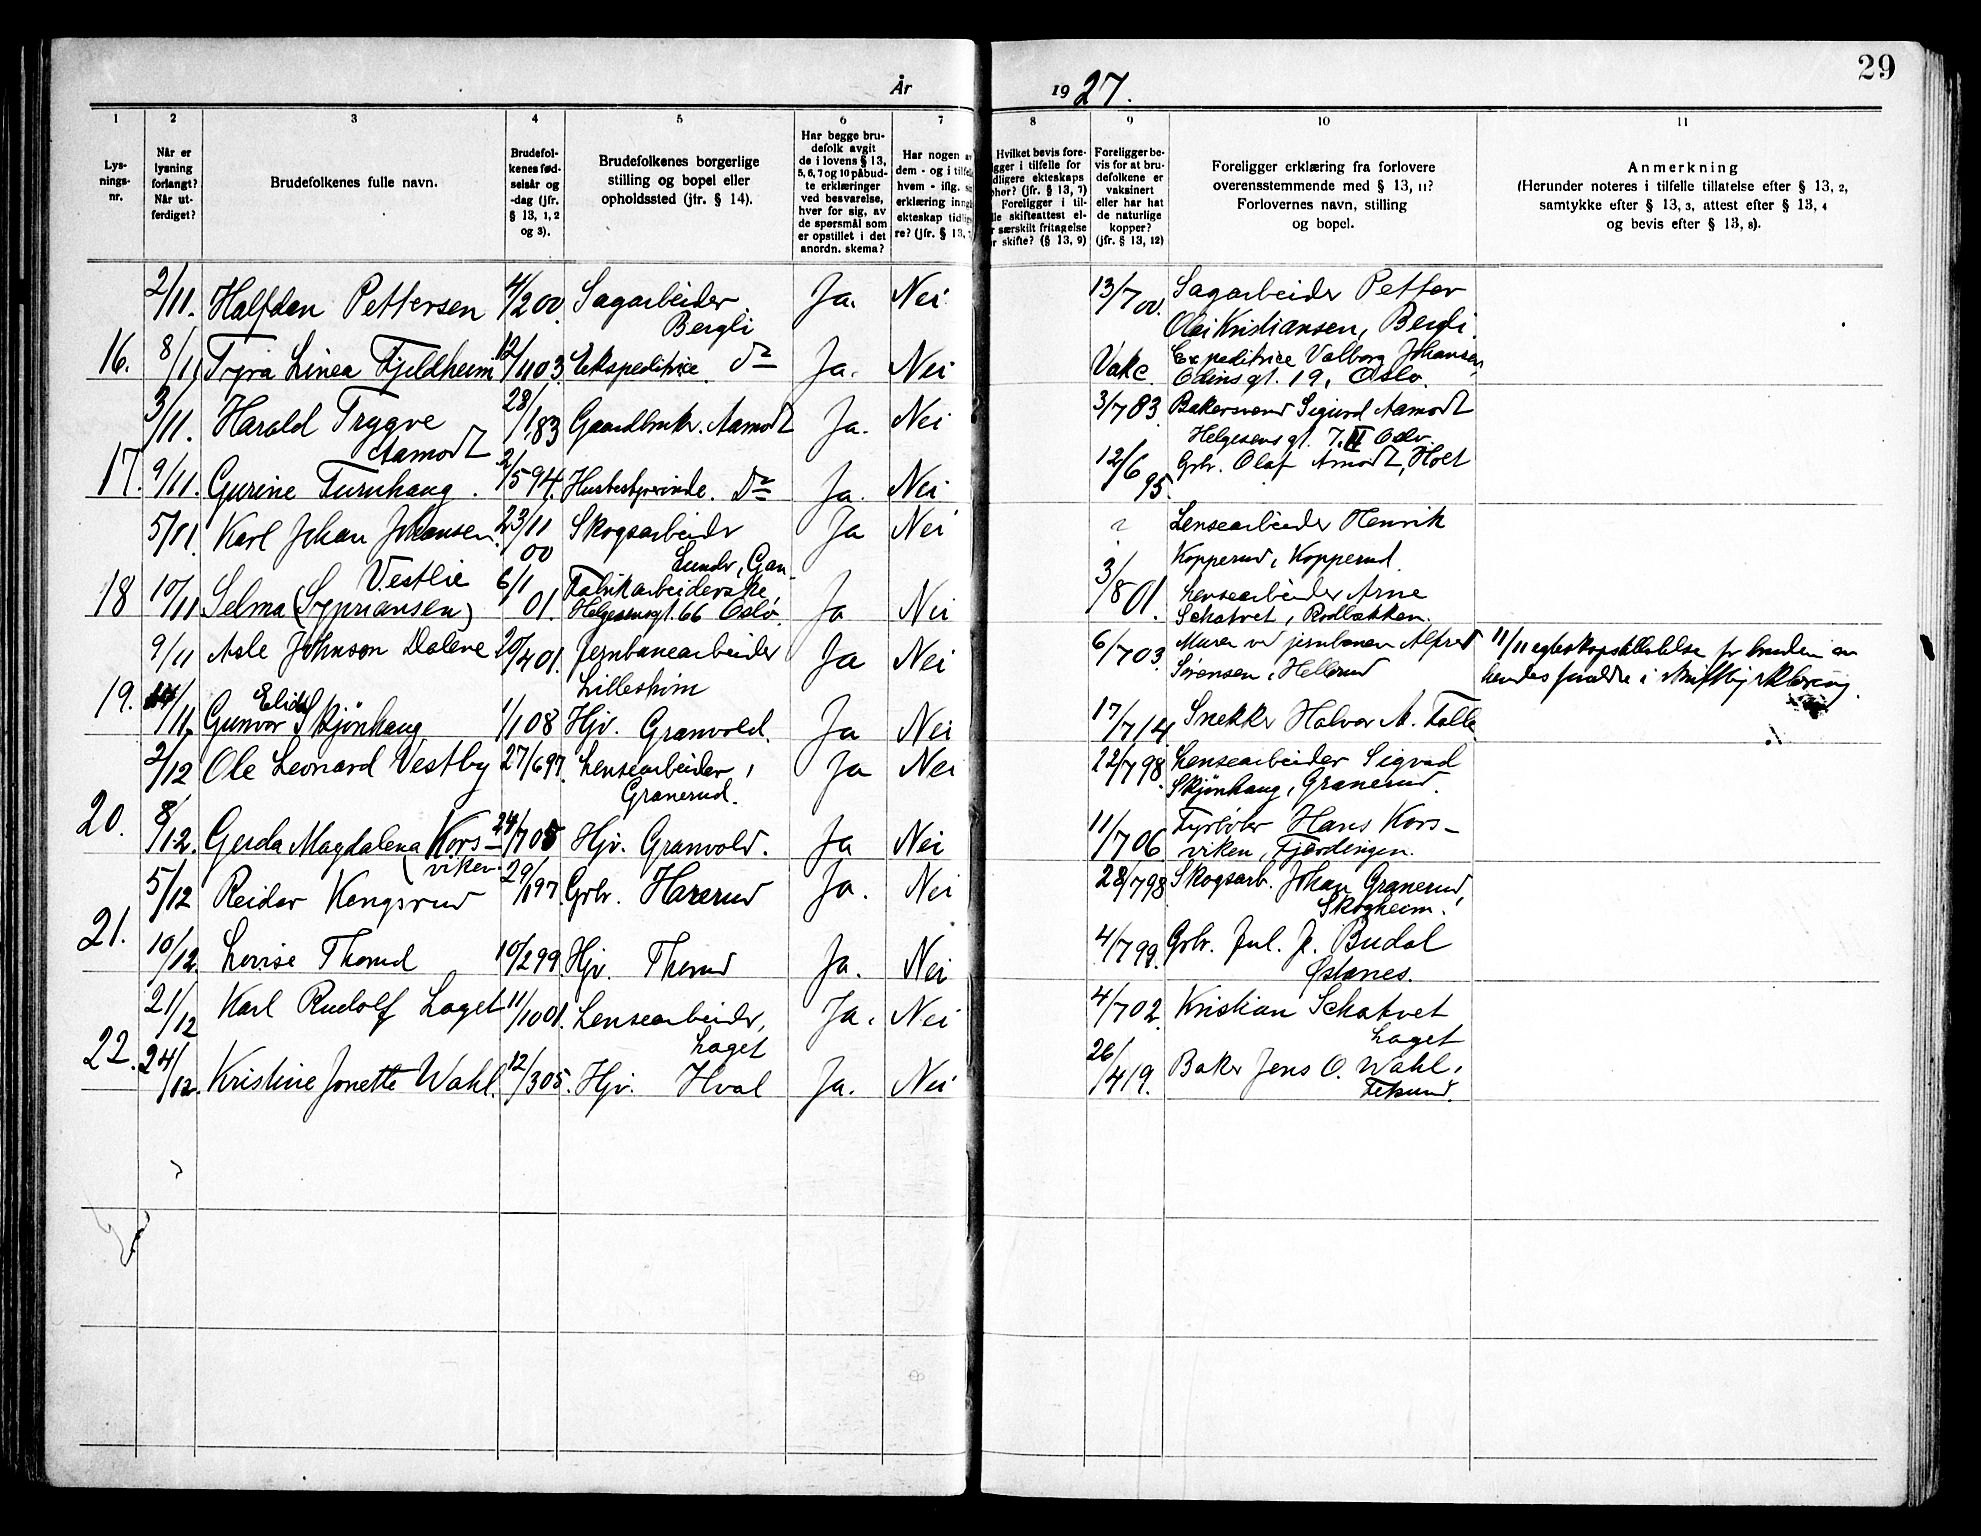 29
År 1927.
1 2 3 4 5 6 7 8 9 10 11
Lys-
nings-
nr.
Når er
lysning
forlangt?
Når ut-
ferdiget?
Brudefolkenes fulle navn.
Brudefol-
kenes fød-
selsår og
-dag (jfr.
§ 13, 1, 2
og 3).
Brudefolkenes borgerlige
stilling og bopel eller
opholdssted (jfr. § 14).
Har begge bru-
defolk avgit
de i lovens § 13,
5, 6, 7 og 10 påbud-
te erklæringer
ved besvarelse,
hver for sig, av
de spørsmål som
er opstillet i det
anordn. skema?
Har nogen av
dem - og i tilfelle
hvem - iflg.
erklæring inng
ekteskap tidlig
re? (jfr. § 13,
Hvilket bevis fore-
gger i tilfelle for
dligere ekteskaps
phør? (jfr. § 13, 7)
Foreligger i til-
lle skifteattest el-
r særskilt fritagelse
r skifte? (§ 13, 9)
Foreligger be-
vis for at bru-
defolkene er
vaksinert
eller har hat
de naturlige
kopper?
(jfr. § 13, 12)
Foreligger erklæring fra forlovere
overensstemmende med § 13, 11?
Forlovernes navn, stilling
og bopel.
Anmerkning
(Herunder noteres i tilfelle tillatelse efter § 13, 2,
samtykke efter § 13, 3, attest efter § 13, 4
og bevis efter § 13, 8).
2/11. Halfdan Pettersen 4/2 00. Sagarbeider Ja. Nei 13/7 00. Sagarbeider Petter
Bergli Olai Kristiansen, Bergli
16. 8/11 Tyra Linea Fjeldheim 12/11 03. Ekspeditrice. Do Ja. Nei Vakc. Expeditrice Valborg Johansen
Odinsgt. 19, Oslo.
3/11. Harald Trygve 28/1 83 Gaardbruker. Aamodt Ja. Nei 3/7 83 Bakersvend Sigurd Aamodt
Aamodt Helgesensgt. 7. II Oslo.
17. 9/11. Gurine Furuhaug. 2/5 94. Husbestyrerinde. Do Ja. Nei 12/6 95. Grbr. Olaf Amodt, Holt
5/11. Karl Johan Johansen 23/11 00 Skogsarbeider Ja Nei ? Lensearbeider Henrik
Vestlie Lunder, Gran Kopperud, Kopperud.
18 10/11 Selma (Sypriansen) 6/1 01. Fabrikarbeiderske Ja Nei 3/8 01. Lensearbeider Arne
Helgesensgt. 66 Oslo. Schatvet, Rodbakken.
9/11 Asle Johnson Dalene 20/4 01. Jernbanearbeider Ja Nei 6/7 03. Murer ved jernbanen Alfred 11/11 egteskapstillatelse for bruden av
Lillestrøm Sørensen, Hellerud hendes foreldre i skriftlig erklæring.
19. 14/11. Gunvor Elida Skjönhaug 1/1 08 Hjv. Granvold. Ja Nei 17/7 14. Snekker Halvor M. Falla
2/12 Ole Leonard Vestby 27/6 97. Lensearbeider, Ja Nei 22/7 98. Lensearbeider Sigvad
Granerud. Skjönhaug, Granerud.
20. 8/12. Gerda Magdalena Kors- 24/7 05 Hjv. Granvold. Ja Nei 11/7 06 Fyrböter Hans Kors-
viken. viken, Fjerdingen.
5/12 Reidar Kengsrud 29/1 97. Grbr. Harerud Ja. Nei 28/7 98 Skogsarb. Johan Granerud,
Skogheim.
21. 10/12. Lovise Thorud 10/2 99. Hjv. Thorud Ja. Nei 4/7 99. Grbr. Jul. J. Budal
Østanes.
21/12 Karl Rudolf Laget 11/10 01. Lensearbeider, Ja. Nei 4/7 02. Kristian Schatvet
Laget Laget
22. 24/12. Kristine Jonette Wahl. 12/3 05. Hjv. Hval Ja. Nei 26/4 19. Baker Jens O. Wahl,
Fetsund.